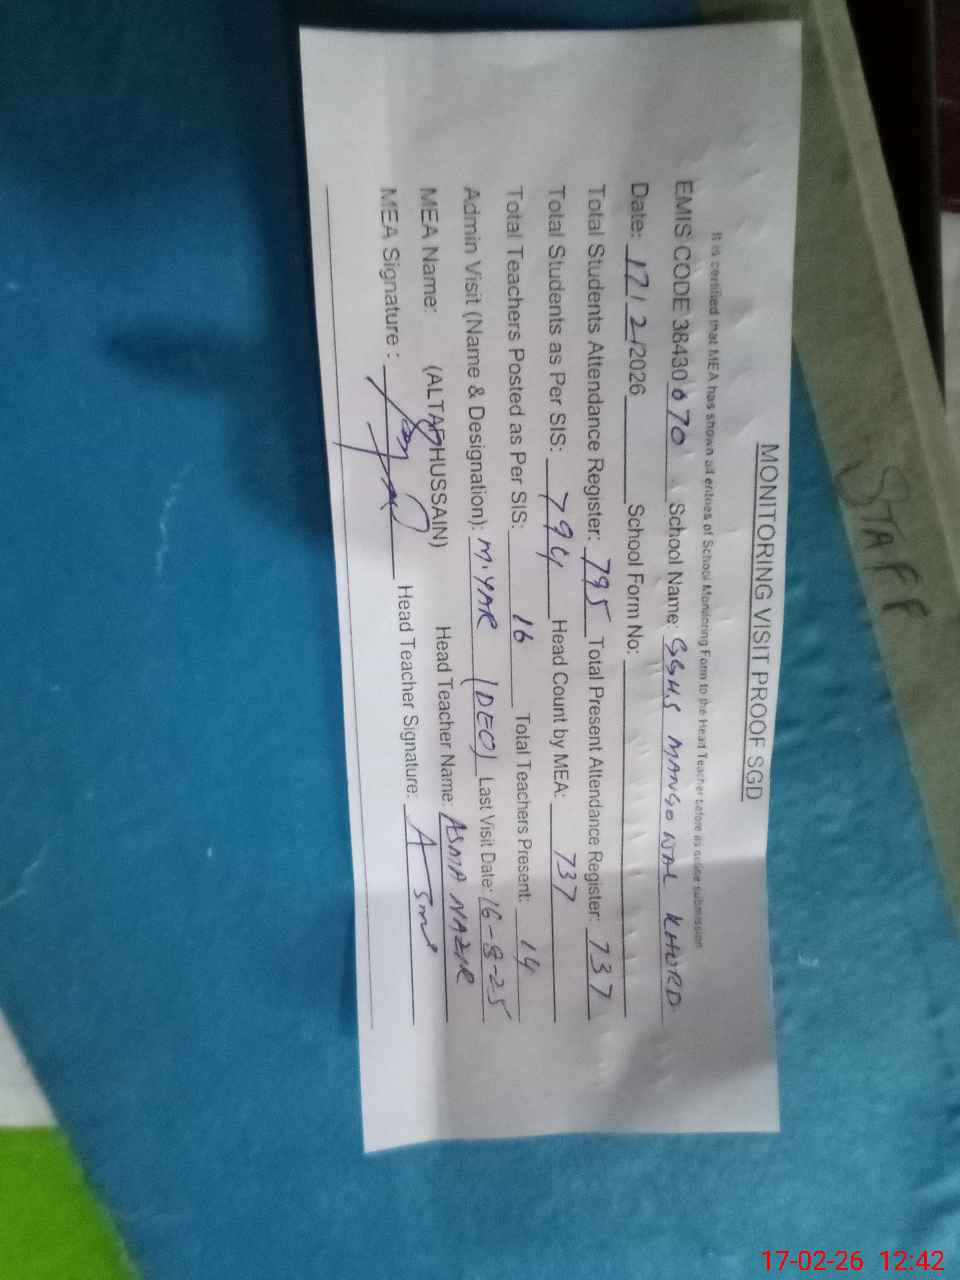 MONITORING VISIT PROOF SGD
It is certified that MEA has shown all entries of School Monitoring Form to the Head Teacher before its online submission
EMIS CODE 38430670 School Name: GGHS MANGOWAL KHURD
Date: 17/2/2026 School Form No:
Total Students Attendance Register: 795 Total Present Attendance Register: 737
Total Students as Per SIS: 794 Head Count by MEA: 737
Total Teachers Posted as Per SIS: 16 Total Teachers Present: 14
Admin Visit (Name & Designation): M.YAR (DEO) Last Visit Date: 16-8-25
MEA Name: (ALTAF HUSSAIN) Head Teacher Name: ASMA NAZIR
MEA Signature: Head Teacher Signature: Asma
STAFF
17-02-26 12:42